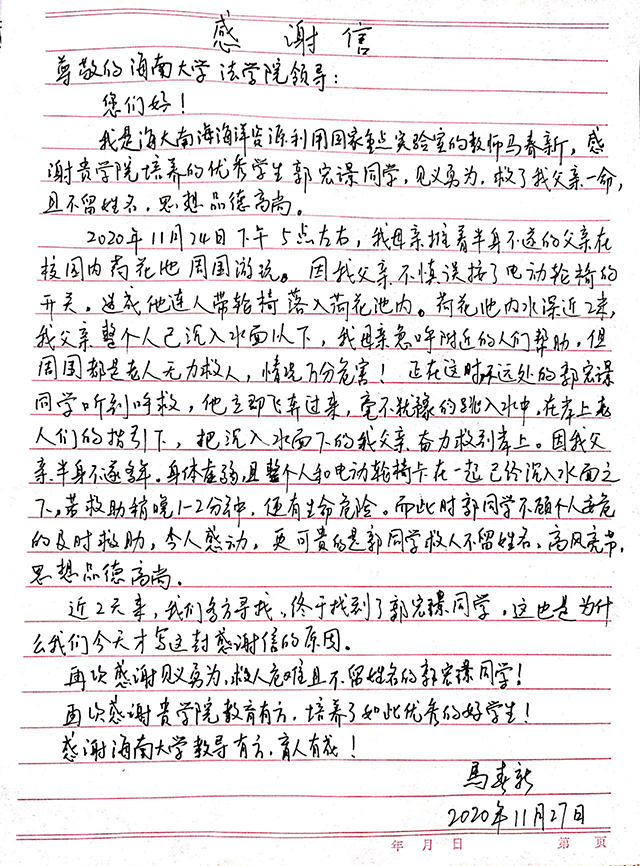 感谢信
尊敬的海南大学法学院领导：
您们好！
我是海大南海海洋资源利用国家重点实验室的教师马春新，感
谢贵学院培养的优秀学生郭宏璟同学，见义勇为，救了我父亲一命，
且不留姓名，思想品德高尚。
2020年11月24日下午5点左右，我母亲推着半身不遂的父亲在
校园内荷花池周围游玩。因我父亲不慎误按了电动轮椅的
开关，造成他连人带轮椅落入荷花池内。荷花池内水深近2米，
我父亲整个人已沉入水面以下，我母亲急呼附近的人们帮助，但
周围都是老人无力救人，情况万分危害！正在这时不远处的郭宏璟
同学听到呼救，他立即飞奔过来，毫不犹豫的跳入水中，在岸上老
人们的指引下，把沉入水面下的我父亲奋力救到岸上。因我父
亲半身不遂多年，身体虚弱，且整个人和电动轮椅卡在一起已经沉入水面之
下，若救助稍晚1-2分钟，便有生命危险。而此时郭同学不顾个人安危
的及时救助，令人感动，更可贵的是郭同学救人不留姓名，高风亮节，
思想品德高尚。
近2天来，我们多方寻找，终于找到了郭宏璟同学，这也是为什
么我们今天才写这封感谢信的原因。
再次感谢见义勇为，救人危难且不留姓名的郭宏璟同学！
再次感谢贵学院教育有方，培养了如此优秀的好学生！
感谢海南大学教导有方，育人有成！
马春新
2020年11月27日
年 月 日 第 页